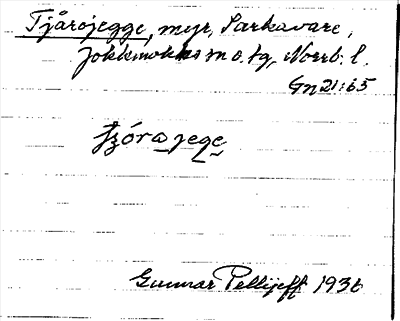 Tjårojegge, myr, Sarkavare,
Jokkmokks m o. tg, Norrb. l.
Gn 21:65
tʒóra jege
Gunnar Pellijeff 1936